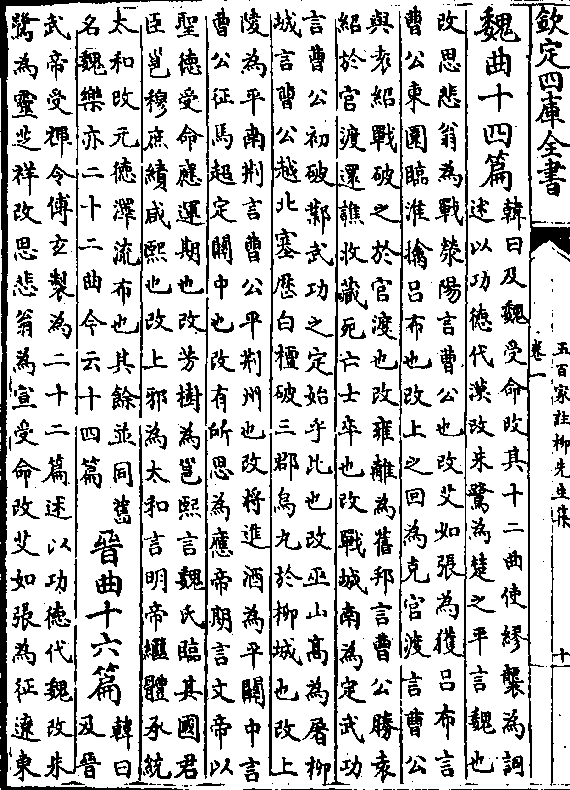 欽定四庫全書
五百家註柳先生集
卷一
十
魏曲十四篇
韓曰及魏受命改其十二曲使繆襲為詞
述以功德代漢改朱鷺為楚之平言魏也
改思悲翁為戰滎陽言曹公也改艾如張為獲吕布言
曹公東圍臨淮擒吕布也改上之回為克官渡言曹公
與袁紹戰破之於官渡也改雍離為舊邦言曹公勝袁
紹於官渡還譙收藏死亡士卒也改戰城南為定武功
言曹公初破鄴武功之定始乎此也改巫山髙為屠栁
城言曹公越北塞歴白檀破三郡烏丸於栁城也改上
陵為平南荆言曹公平荆州也改将進酒為平關中言
曹公征馬超定關中也改有所思為應帝期言文帝以
聖徳受命應運期也改芳樹為邕熙言魏氏臨其國君
臣邕穆庶績咸熙也改上邪為太和言明帝繼體承統
太和改元徳澤流布也其餘並同舊
名魏樂亦二十二曲今云十四篇
晉曲十六篇
韓曰
及晉
武帝受禪令傅玄製為二十二篇述以功德代魏改朱
鷺為靈之祥改思悲翁為宣受命改艾如張為征遼東